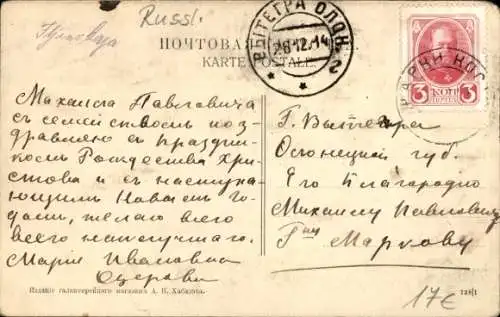 Russl.
ПОЧТОВАЯ
CARTE POSTALE.
ВЫТЕГРА ОЛОН. 2
26.12.14
3 КОП 3
Михаила Павловича
съ семействомъ поз-
дравляю съ праздни-
комъ Рождества Хри-
стова и съ наступа-
ющимъ Новымъ Го-
домъ, желаю всего
всего наилучшаго.
Марія Ивановна
Г. Вытегра
Олонецкой губ.
Его Благородію
Михаилу Павловичу
Г-ну Маркову
Изданіе галантерейнаго магазина А. К. Хабазова.
17€